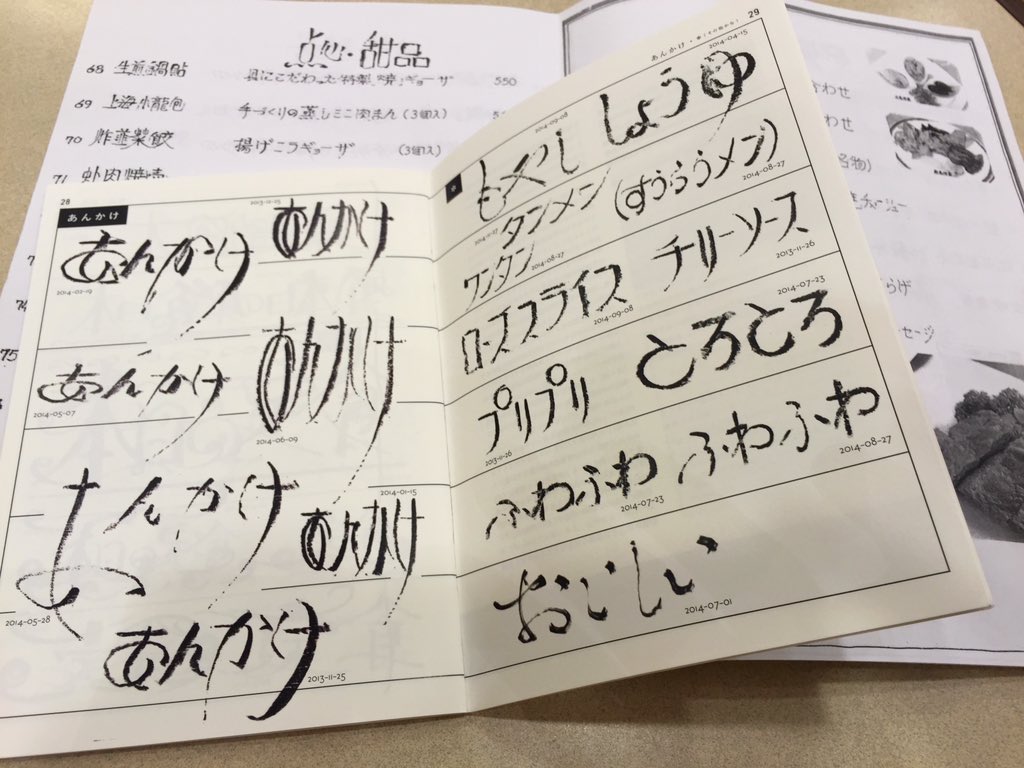 点心・甜品
68 生煎鍋貼 具にこだわった特製「焼」ギョーザ 550
69 上海小籠包 手づくりの蒸しミニ肉まん (3個入)
70 炸韮菜餃 揚げニラギョーザ (3個入)
71
75
わせ
わせ
名物)
チャーシュー
らげ
セージ
28
あんかけ
あんかけ
2014-02-19
あんかけ
2013-11-25
あんかけ
2014-05-07
あんかけ
2014-06-09
あんかけ
2014-05-28
あんかけ
2014-01-15
あんかけ
2013-11-25
29
あんかけ・
もやし
2014-09-08
しょうゆ
2014-04-15
タンメン
(すうらうメン)
2014-08-27
ワンタン
2014-08-27
ローススライス
2014-09-08
チリーソース
2013-11-26
プリプリ
2013-11-26
とろとろ
2014-07-23
ふわふわ
2014-07-23
ふわふわ
2014-08-27
おいしい
2014-07-01